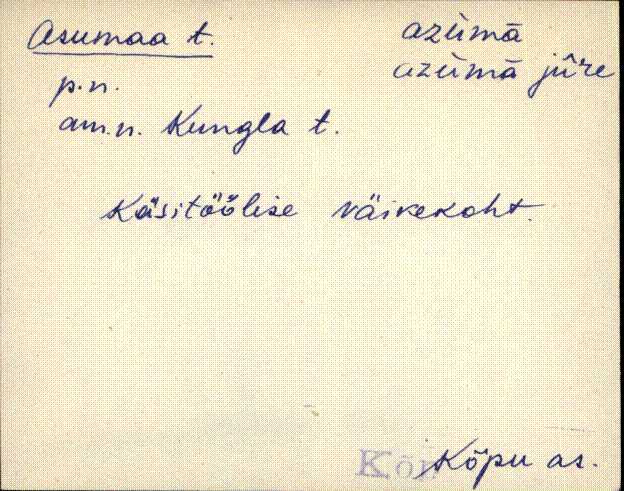 Asumaa t. azùmà
azùmà jûre
p.n.
am.n. Kungla t.
Käsitöölise väikekoht.
Kõp Kõpu as.